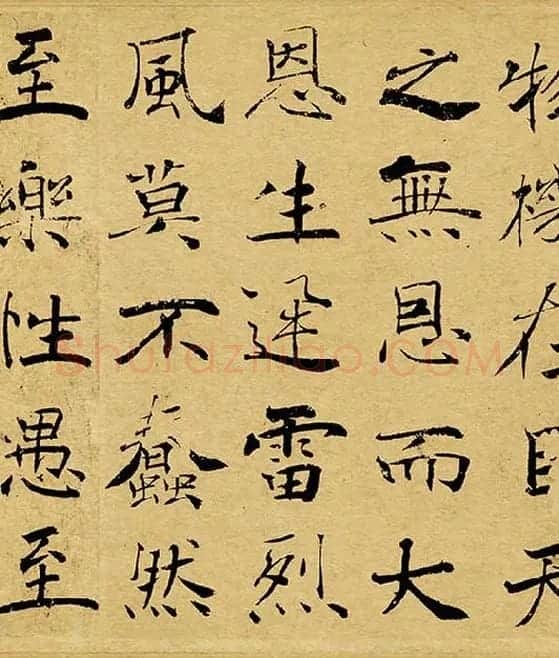 物機在目天
之無恩而大
恩生迅雷烈
風莫不蠢然
至樂性愚至
Shufaziliao.COM